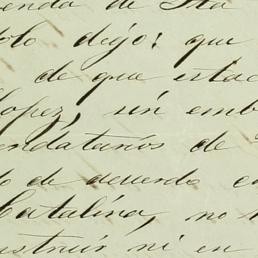 enda de Sta
olo dejo: que
de que estac
Lopez, sin emb
endatarios de
o de acuerdo co
Catalina, no
struir ni en